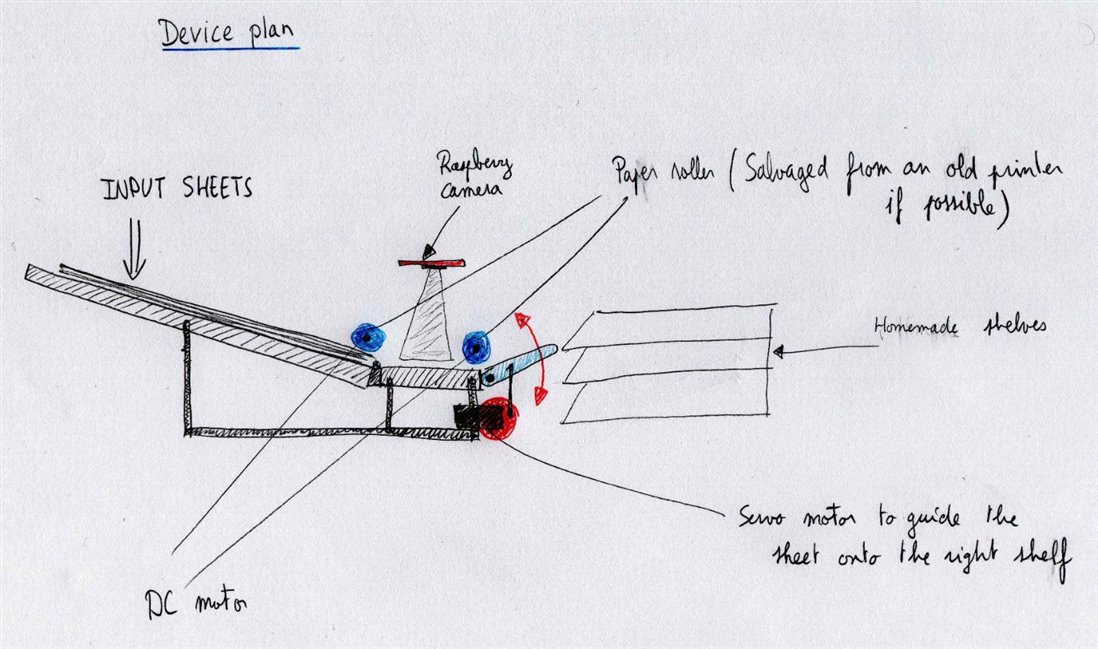 Device plan
INPUT SHEETS
Raspberry
camera
Paper roller (Salvaged from an old printer
if possible)
Homemade shelves
Servo motor to guide the
sheet onto the right shelf
DC motor